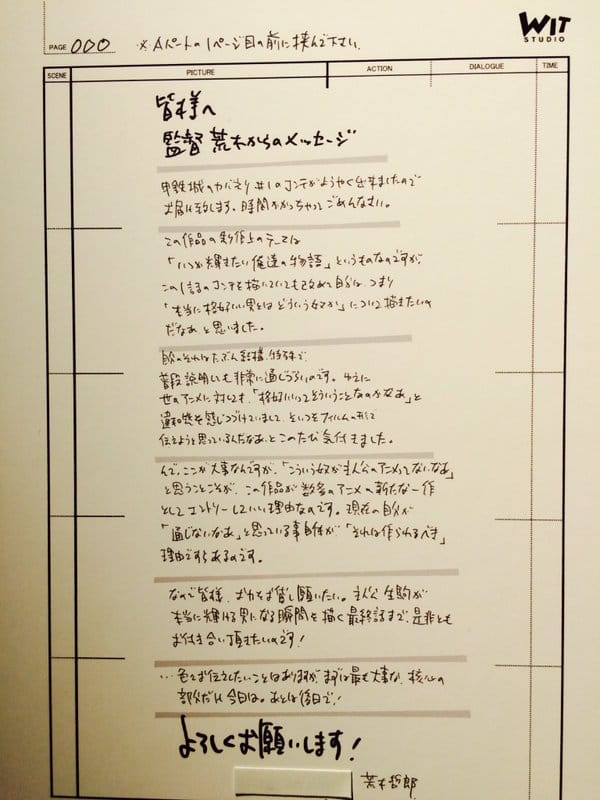 WIT STUDIO
PAGE 000 ※Aパートの1ページ目の前に挟んで下さい。
SCENE PICTURE ACTION DIALOGUE TIME
皆様へ
監督 荒木からのメッセージ
甲鉄城のカバネリ #1のコンテがようやく出来ましたので
お届け致します。時間かかっちゃってごめんなさい。
この作品の制作上のテーマは
「いつか輝きたい俺達の物語」というものなのですが
この1話のコンテを描いていても改めて自分は、つまり
「本当に格好いい男とはどういう奴か」について描きたいの
だなあ と思いました。
自分のそれはたぶん結構特殊で
普段説明しても非常に通じづらいのです。ゆえに
世のアニメに対しても、「格好いいってそういうことなのかなあ」と
違和感を感じつづけていまして、そいつをフィルムの形で
伝えようと思っているんだなあ、とこのたび気付きました。
んで、ここが大事なんですが、「こういう奴が主人公のアニメってないなあ」
と思うところが、この作品が数多のアニメの新たな一作
としてエントリーしていい理由なのです。現在の自分が
「通じないなあ」と思っている事自体が「それは作られるべき」
理由ですらあるのです。
なので皆様、お力をお貸し願いたい。主人公 生駒が
本当に輝ける男になる瞬間を描く最終話まで、是非とも
お付き合い頂きたいのです！
…色々お伝えしたいことはありますが、まずは最も大事な、核心の
部分だけ今日は。あとは後日で！
よろしくお願いします！
荒木哲郎